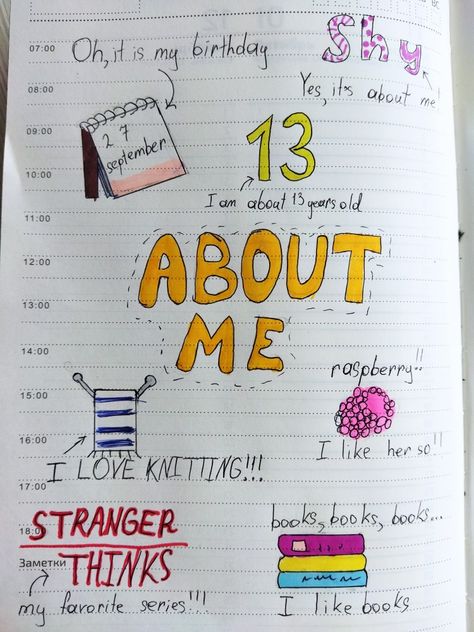 07:00
Oh, it is my birthday
Shy
08:00
Yes, it's about me!
09:00
27
september
13
10:00
I am about 13 years old
11:00
ABOUT
12:00
13:00
ME
14:00
raspberry!!
15:00
16:00
I like her so!!
I LOVE KNITTING!!!
17:00
STRANGER
books, books, books...
18:00
THINKS
Заметки
my favorite series!!!
I like books